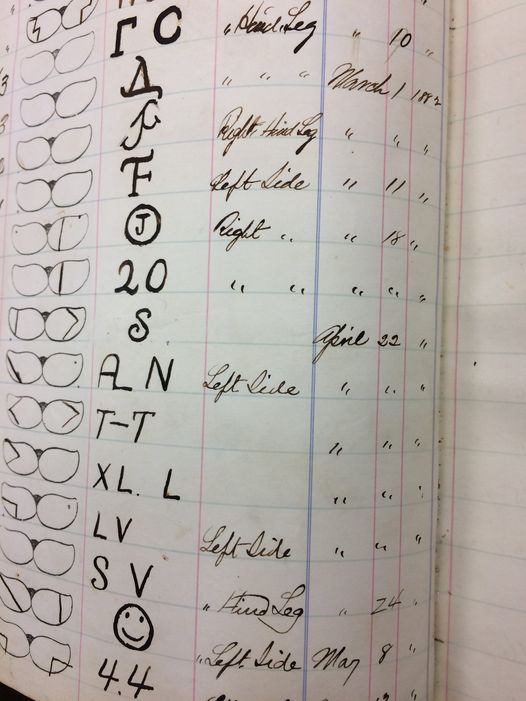 Γ C " Hind Leg " 10 "
" " " March 1
Right Hind Leg " " "
F Left Side " 11 "
J Right " " 18 "
20 " " " " "
S April 22 "
A N Left Side " " "
T-T " " "
XL. L " " "
LV Left Side " " "
S V " Hind Leg " 24 "
" Left Side May 8 "
4.4